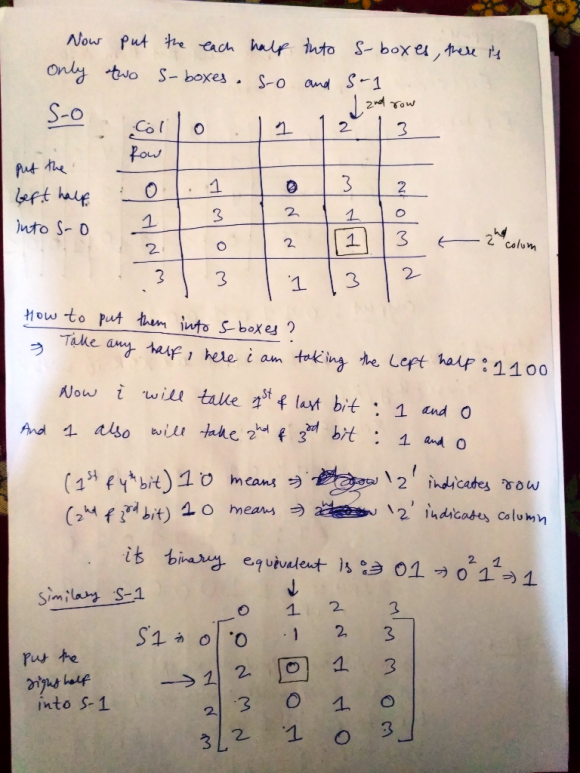 Now put the each half into S-boxes, there is
only two S-boxes. S-0 and S-1
↓ 2nd row
S-0
Col 0 1 2 3
Row
put the
Left half
into S-0
0 1 0 3 2
1 3 2 1 0
2 0 2 1 3 ← 2nd colum
3 3 1 3 2
How to put them into S-boxes?
⇒ Take any half, here i am taking the Left half : 1100
Now i will take 1st & last bit : 1 and 0
And 1 also will take 2nd & 3rd bit : 1 and 0
(1st & 4th bit) 10 means ⇒ '2' indicates row
(2nd & 3rd bit) 10 means ⇒ '2' indicates column
its binary equivalent is :⇒ 01 ⇒ 0² 1¹ ⇒ 1
Similary S-1
↓
0 1 2 3
S1 ⇒ 0 0 1 2 3
put the
right half
into S-1
→ 1 2 0 1 3
2 3 0 1 0
3 2 1 0 3